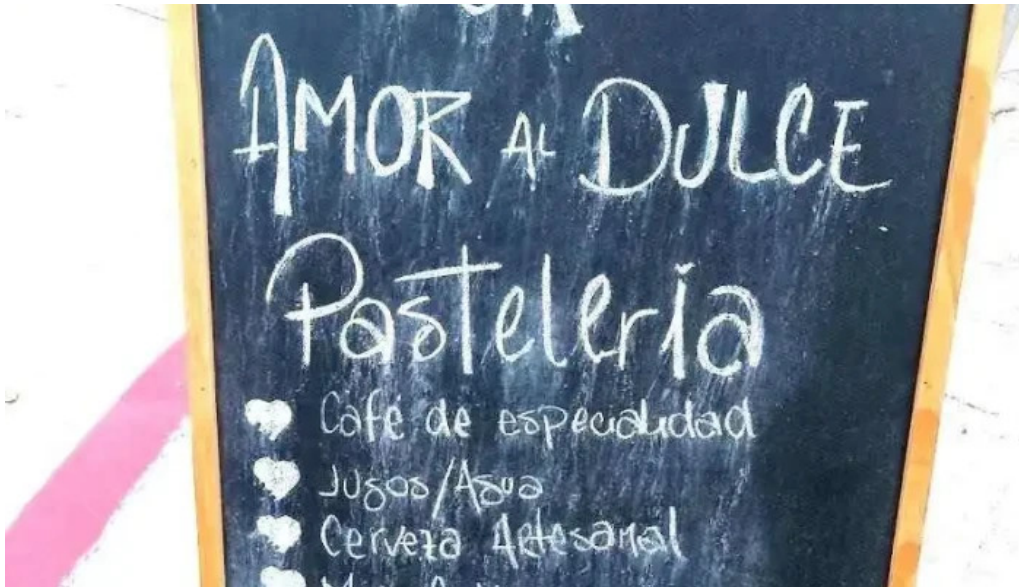 AMOR AL DULCE
Pastelería
Café de especialidad
Jugos/Agua
Cerveza Artesanal